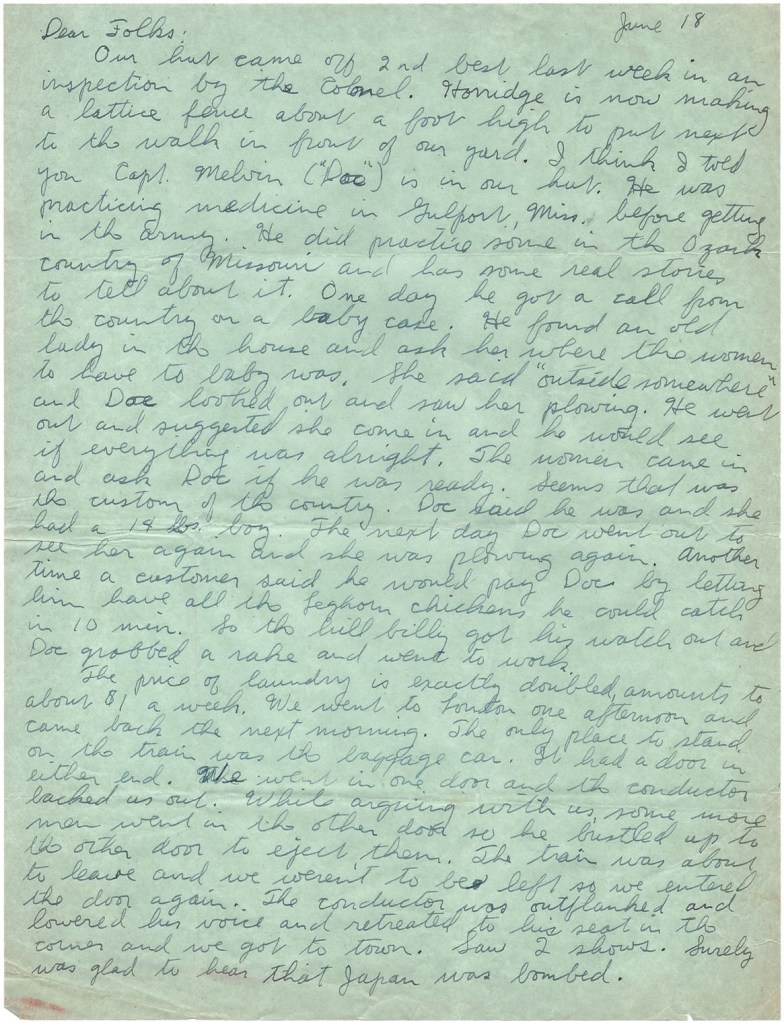 June 18
Dear Folks:
Our hut came off 2nd best last week in an
inspection by the Colonel. Horridge is now making
a lattice fence about a foot high to put next
to the walk in front of our yard. I think I told
you Capt. Melvin ("Doc") is in our hut. He was
practicing medicine in Gulfport, Miss. before getting
in the army. He did practice some in the Ozark
country of Missouri and has some real stories
to tell about it. One day he got a call from
the country on a baby case. He found an old
lady in the house and ask her where the women
to have to baby was. She said "outside somewhere"
and Doc looked out and saw her plowing. He went
out and suggested she come in and he would see
if everything was alright. The women came in
and ask Doc if he was ready. Seems that was
the custom of the country. Doc said he was and she
had a 14 lbs. boy. The next day Doc went out to
see her again and she was plowing again. Another
time a customer said he would pay Doc by letting
him have all the Leghorn chickens he could catch
in 10 min. So the hill billy got his watch out and
Doc grabbed a rake and went to work.
The price of laundry is exactly doubled, amounts to
about $1 a week. We went to London one afternoon and
came back the next morning. The only place to stand
on the train was the baggage car. It had a door in
either end. We went in one door and the conductor
backed us out. While arguing with us, some more
men went in the other door so he bustled up to
the other door to eject them. The train was about
to leave and we weren't to be left so we entered
the door again. The conductor was outflanked and
lowered his voice and retreated to his seat in the
corner and we got to town. Saw 2 shows. Surely
was glad to hear that Japan was bombed.